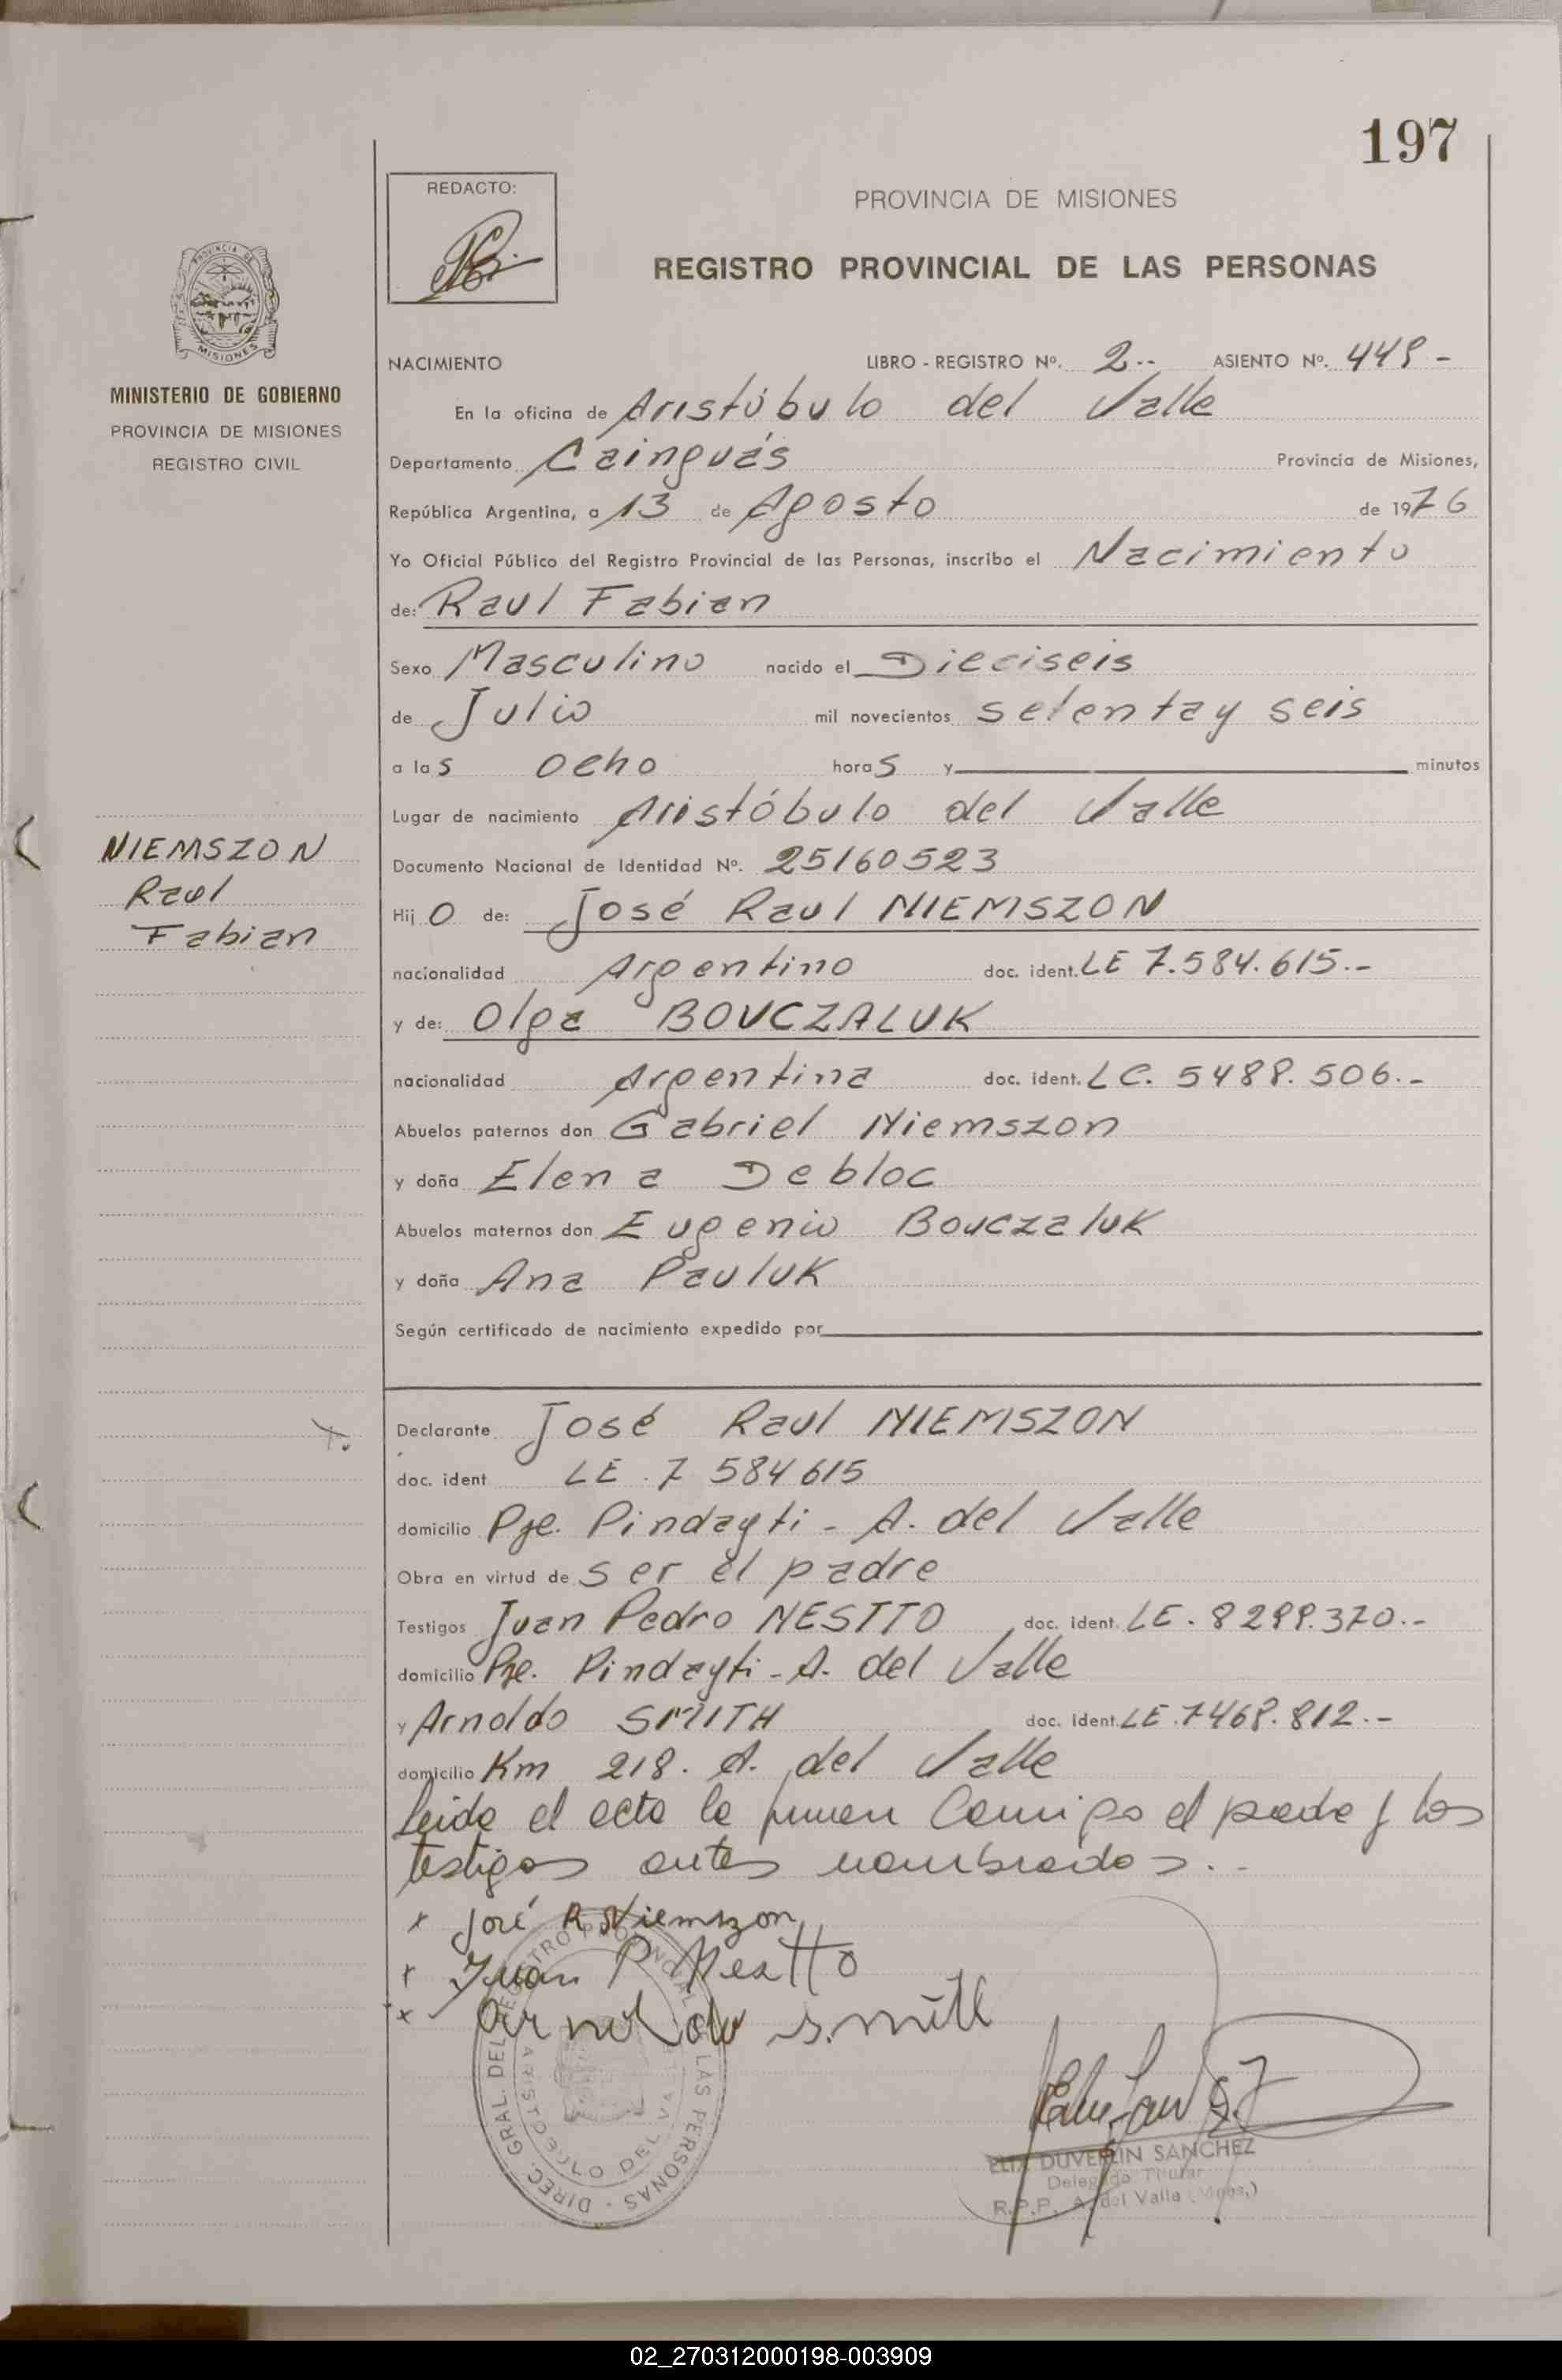 197
REDACTO:
PROVINCIA DE MISIONES
REGISTRO PROVINCIAL DE LAS PERSONAS
MINISTERIO DE GOBIERNO
PROVINCIA DE MISIONES
REGISTRO CIVIL
NACIMIENTO LIBRO - REGISTRO Nº. 2.-- ASIENTO Nº. 449-
En la oficina de Aristóbulo del Valle
Departamento Cainguás Provincia de Misiones,
República Argentina, a 13 de Agosto de 1976
Yo Oficial Público del Registro Provincial de las Personas, inscribo el Nacimiento
de: Raul Fabian
Sexo Masculino nacido el Dieciseis
de Julio mil novecientos setenta y seis
a las ocho horas y minutos
Lugar de nacimiento Aristóbulo del Valle
NIEMSZON
Raul
Fabian
Documento Nacional de Identidad Nº. 25160523
Hijo de: José Raul NIEMSZON
nacionalidad Argentino doc. ident. LE 7.584.615.-
y de: Olga BOUCZALUK
nacionalidad Argentina doc. ident. LC. 5489.506.-
Abuelos paternos don Gabriel Niemszon
y doña Elena Debloc
Abuelos maternos don Eugenio Bouczaluk
y doña Ana Pauluk
Según certificado de nacimiento expedido por
Declarante José Raul NIEMSZON
doc. ident LE. 7 584 615
domicilio Pje. Pindayti - A. del Valle
Obra en virtud de ser el padre
Testigos Juan Pedro NESTTO doc. ident. LE. 8299.370.-
domicilio Pje. Pindayti - A. del Valle
y Arnoldo SMITH doc. ident. LE. 7469.812.-
domicilio Km 218. A. del Valle
Leida el acta la firman Conmigo el padre y los
testigos antes nombrados.-
x José R Niemszon
x Juan P Nestto
x Arnoldo Smith
DIREC. GRAL. DEL REGISTRO PROVINCIAL DE LAS PERSONAS
ARISTOBULO DEL VALLE
DUVERLIN SANCHEZ
Delegado Titular
R.P.P. A. del Valle (Mnes.)
02_270312000198-003909